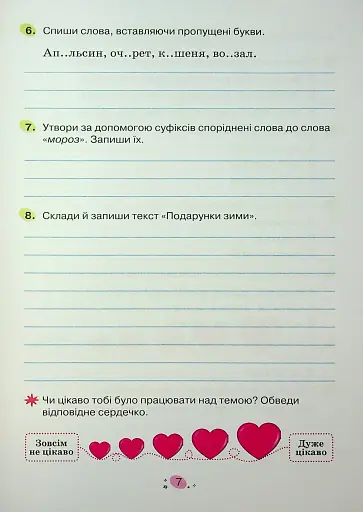 6. Спиши слова, вставляючи пропущені букви.
Ап..льсин, оч..рет, к..шеня, во..зал.
7. Утвори за допомогою суфіксів споріднені слова до слова
«мороз». Запиши їх.
8. Склади й запиши текст «Подарунки зими».
Чи цікаво тобі було працювати над темою? Обведи
відповідне сердечко.
Зовсім
не цікаво
Дуже
цікаво
7